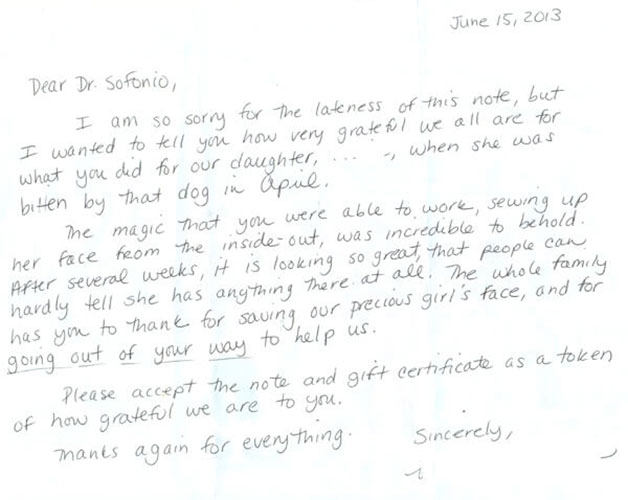 June 15, 2013
Dear Dr. Sofonio,
I am so sorry for the lateness of this note, but
I wanted to tell you how very grateful we all are for
what you did for our daughter, ... -, when she was
bitten by that dog in April.
The magic that you were able to work, sewing up
her face from the inside-out, was incredible to behold.
After several weeks, it is looking so great, that people can
hardly tell she has anything there at all. The whole family
has you to thank for saving our precious girl's face, and for
going out of your way to help us.
Please accept the note and gift certificate as a token
of how grateful we are to you.
Thanks again for everything.
Sincerely,